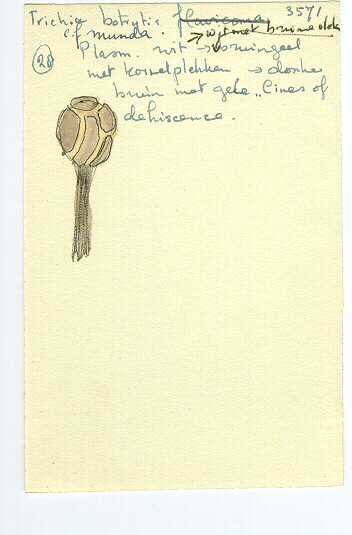 Trichia botrytis flavicoma 3571
cf munda. → wit met bruine vlek
(28) Plasm. wit → bruingeel
met korrelplekken → donker
bruin met gele „Lines of
dehiscence.